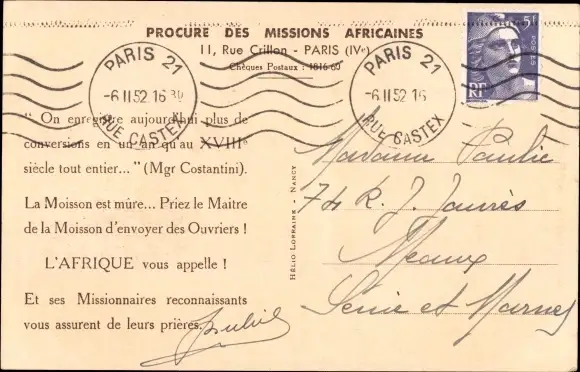 PROCURE DES MISSIONS AFRICAINES
11, Rue Crillon - PARIS (IVe)
Chèques Postaux : 1816-60
PARIS 21
-6 II 52 16 30
RUE CASTEX
PARIS 21
-6 II 52 16
RUE CASTEX
5F
RF
" On enregistre aujourd'hui plus de
conversions en un an qu'au XVIIIe
siècle tout entier... " (Mgr Costantini).
La Moisson est mûre... Priez le Maître
de la Moisson d'envoyer des Ouvriers !
L'AFRIQUE vous appelle !
Et ses Missionnaires reconnaissants
vous assurent de leurs prières.
HÉLIO LORRAINE - NANCY
Madame Paulic
74 R. J. Jaurès
Meaux
Seine et Marne